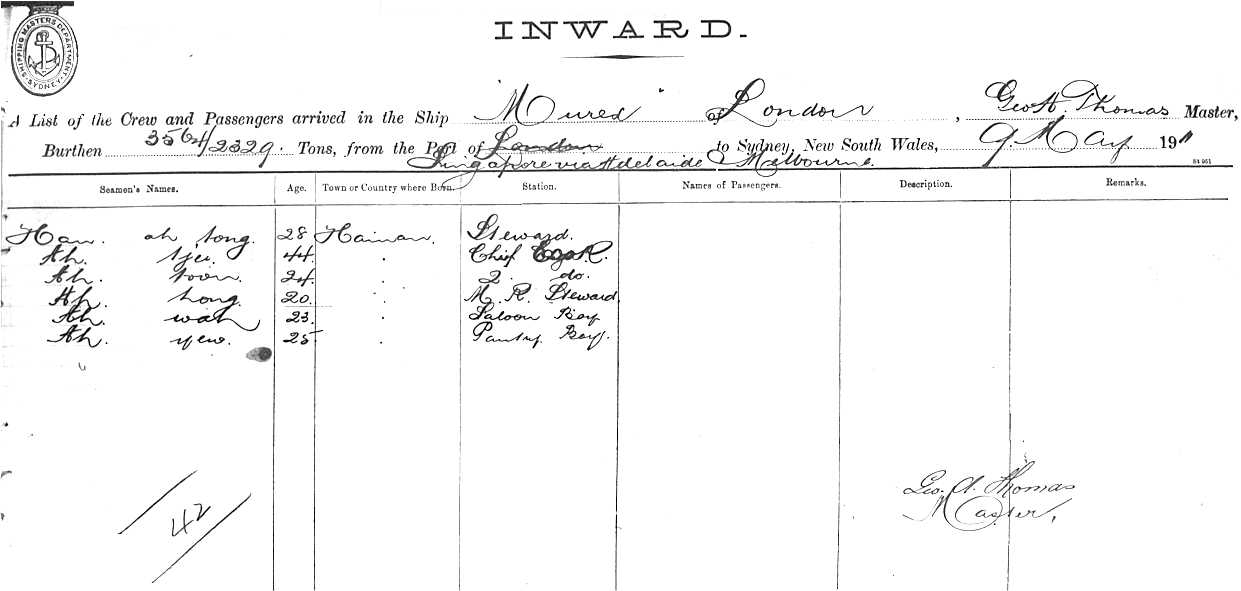 SHIPPING MASTERS DEPARTMENT SYDNEY
INWARD.
A List of the Crew and Passengers arrived in the Ship "Mured" of London, Geo A. Thomas Master,
Burthen 3564/2329. Tons, from the Port of London to Sydney, New South Wales, 9 May 1911
Singapore via Adelaide & Melbourne. 84 961
Seamen's Names. Age. Town or Country where Born. Station. Names of Passengers. Description. Remarks.
Han. ah tong. 28 Hainan. Steward.
Ah. 44 . Chief Cook.
Ah. toon. 24. . 2. do.
Ah. hong. 20. . M. R. Steward
Ah. wah 23. . Saloon Boy
Ah. yew. 25 . Pantry Boy.
Geo. A. Thomas
Master.
42